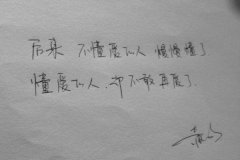 后来 不懂爱的人 慢慢懂了
懂爱的人,却不敢再爱了